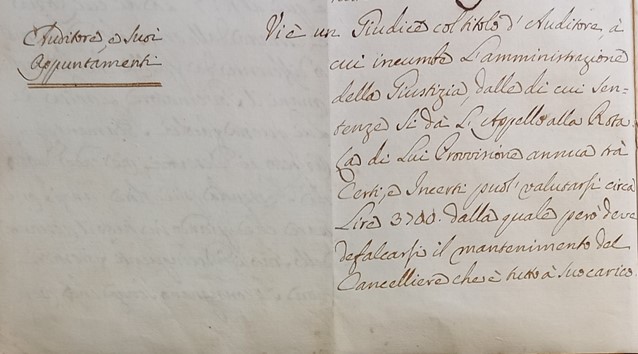 Auditore, e Suoi
Appuntamenti.
Vi è un Giudice col titolo d'Auditore, à
cui incumbe L'amministrazione
della Giustizia, dalle di cui sen=
tenze si dà L'Appello alla Rota.
La di Lui Provvisione annua trà
Certi, e Incerti puol' valutarsi circa
Lire 3700. dalla quale però deve
defalcarsi il mantenimento del
Cancelliere che è tutto à suo carico.